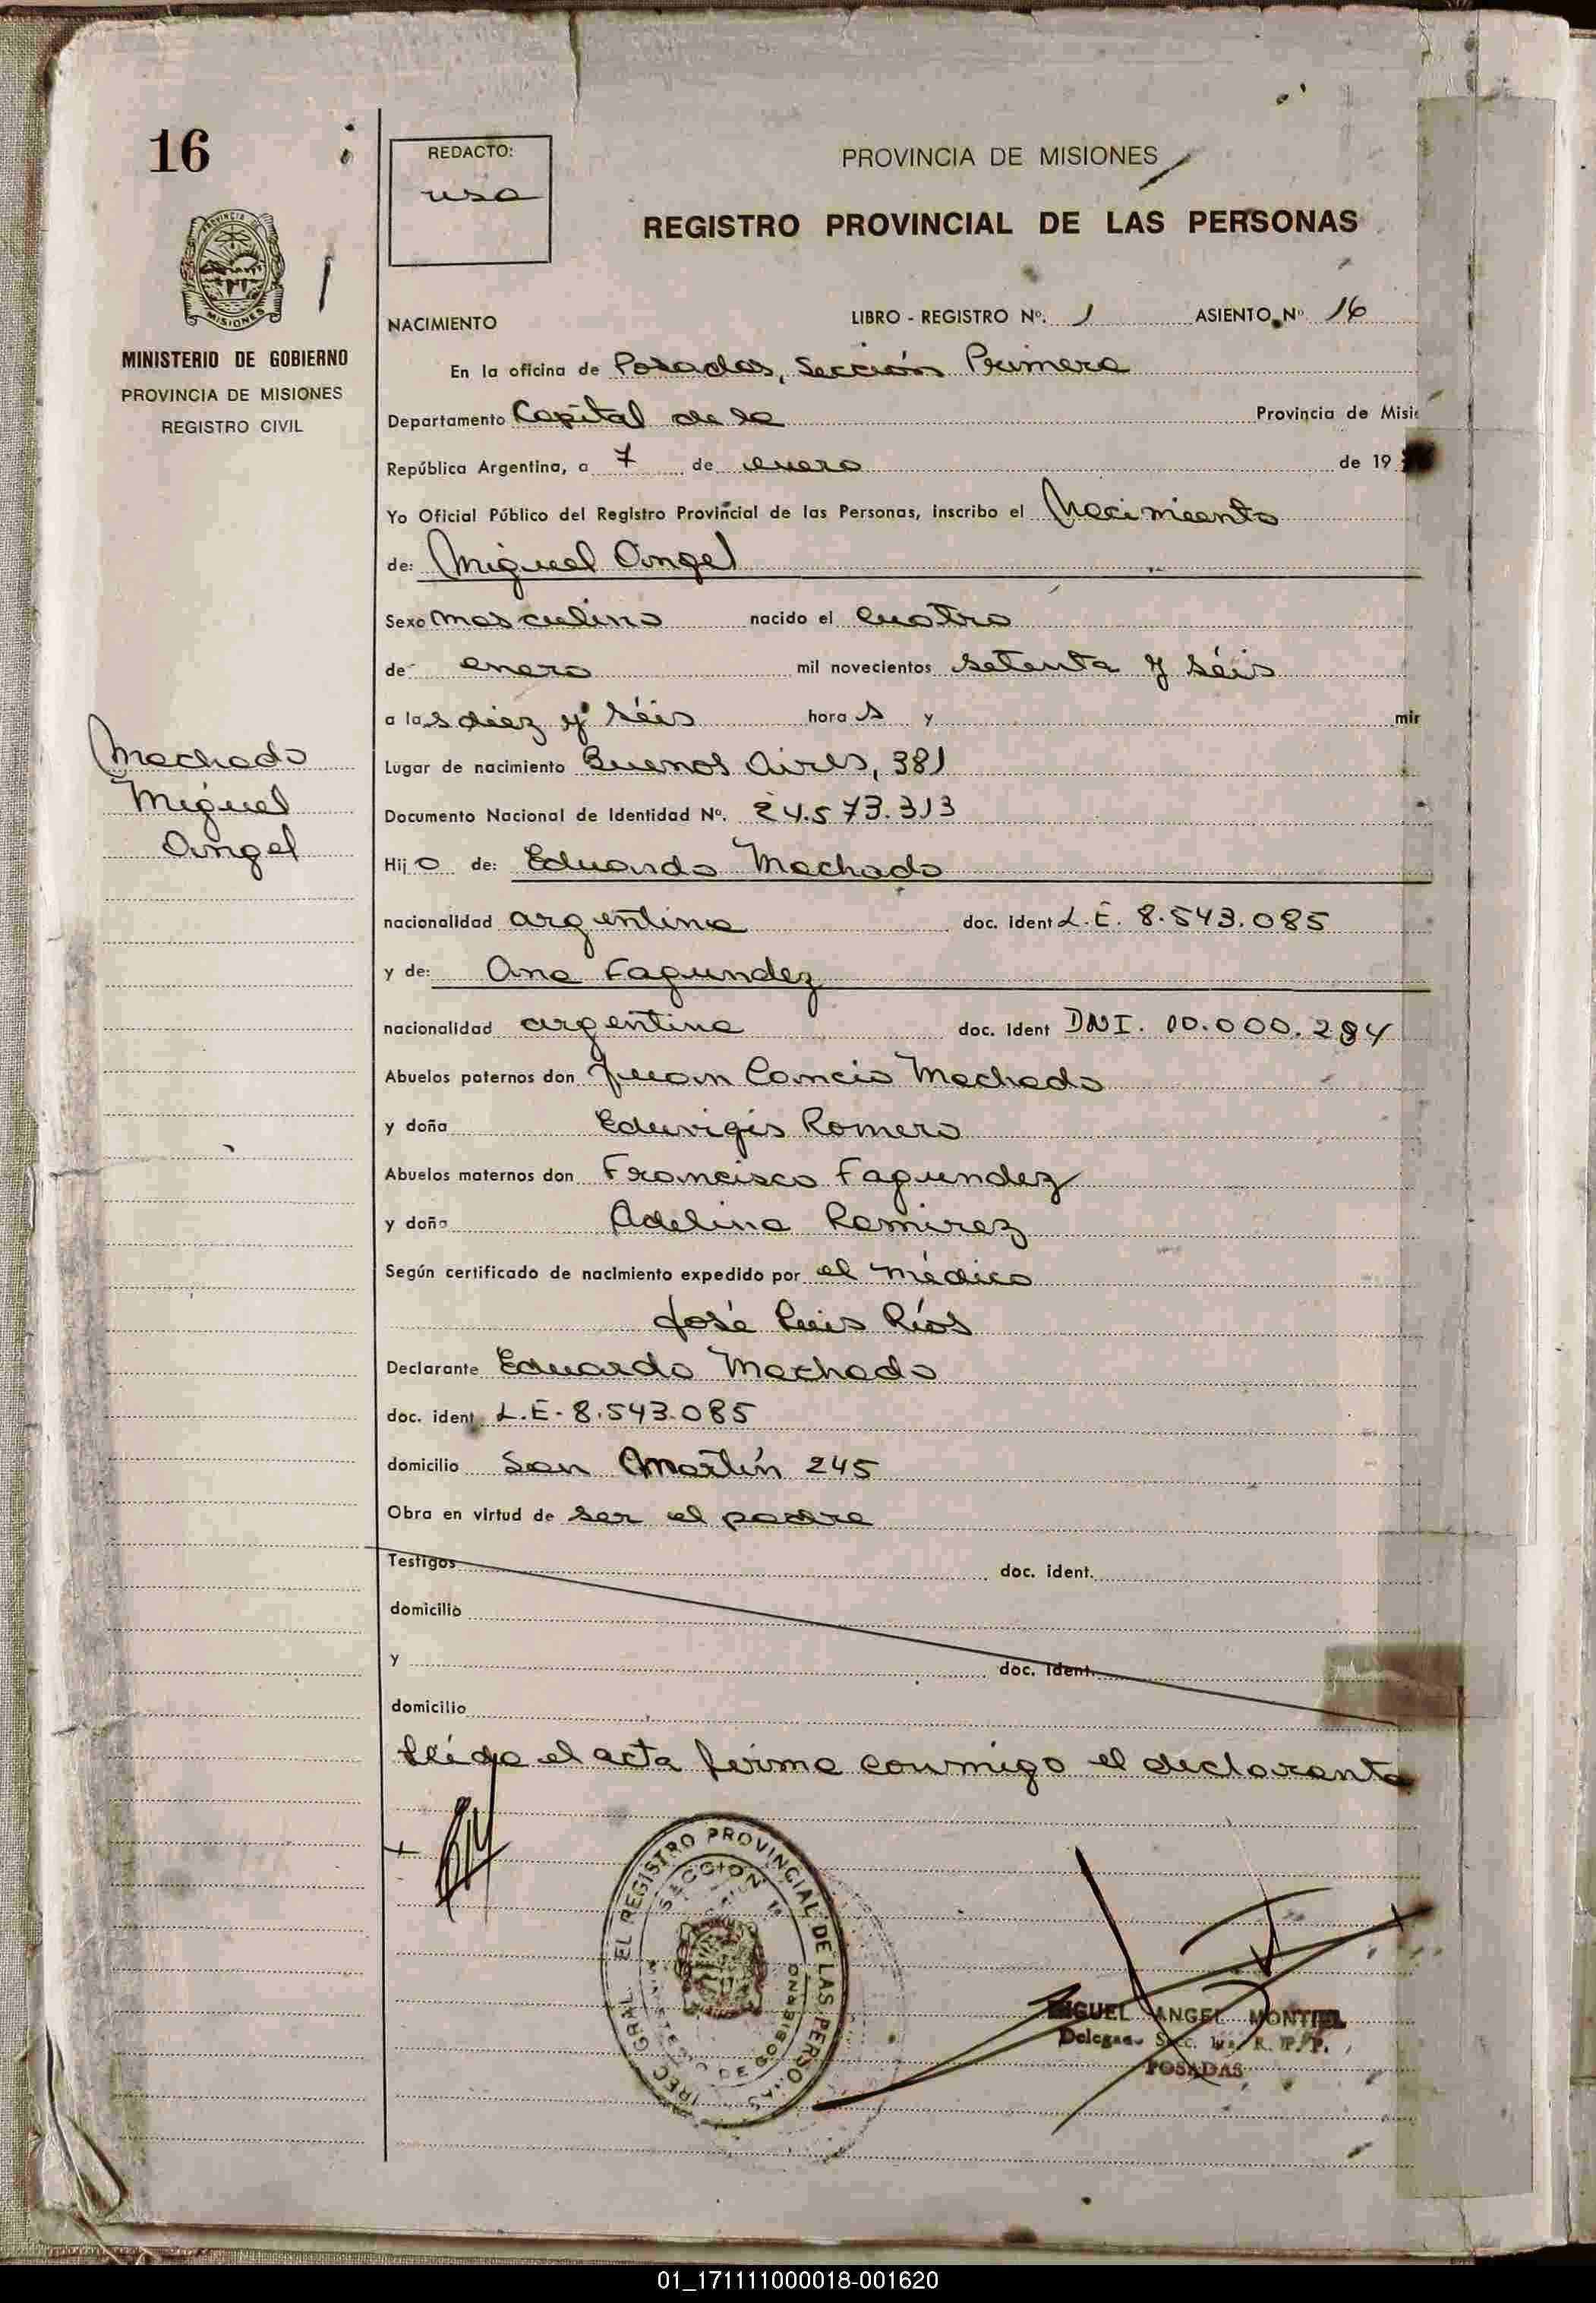 16
REDACTO:
usa
PROVINCIA DE MISIONES
REGISTRO PROVINCIAL DE LAS PERSONAS
PROVINCIA DE
MISIONES
MINISTERIO DE GOBIERNO
PROVINCIA DE MISIONES
REGISTRO CIVIL
NACIMIENTO
LIBRO - REGISTRO Nº. 1 ASIENTO Nº 16
En la oficina de Posadas, Sección Primera
Departamento Capital de la Provincia de Misi
República Argentina, a 7 de enero de 19
Yo Oficial Público del Registro Provincial de las Personas, inscribo el Nacimiento
de: Miguel Angel
Sexo masculino nacido el cuatro
de enero mil novecientos setenta y séis
a las diez y séis horas y min
Machado
Miguel
Angel
Lugar de nacimiento Buenos Aires, 381
Documento Nacional de Identidad Nº. 24.573.313
Hijo de: Eduardo Machado
nacionalidad argentina doc. ident L.E. 8.543.085
y de: Ana Fagundez
nacionalidad argentina doc. ident DNI. 00.000.284
Abuelos paternos don Juan Cancio Machado
y doña Eduvigis Romero
Abuelos maternos don Francisco Fagundez
y doña Adelina Ramirez
Según certificado de nacimiento expedido por el médico
José Luis Ríos
Declarante Eduardo Machado
doc. ident. L.E. 8.543.085
domicilio San Martín 245
Obra en virtud de ser el padre
Testigos doc. ident.
domicilio
y doc. ident.
domicilio
Lléida el acta firma conmigo el declarante
DIREC. GRAL. EL REGISTRO PROVINCIAL DE LAS PERSONAS
SECCION 1a
MINISTERIO DE GOBIERNO
MIGUEL ANGEL MONTIEL
Delegado Secc. 1ra. R. P. P.
POSADAS
01_171111000018-001620